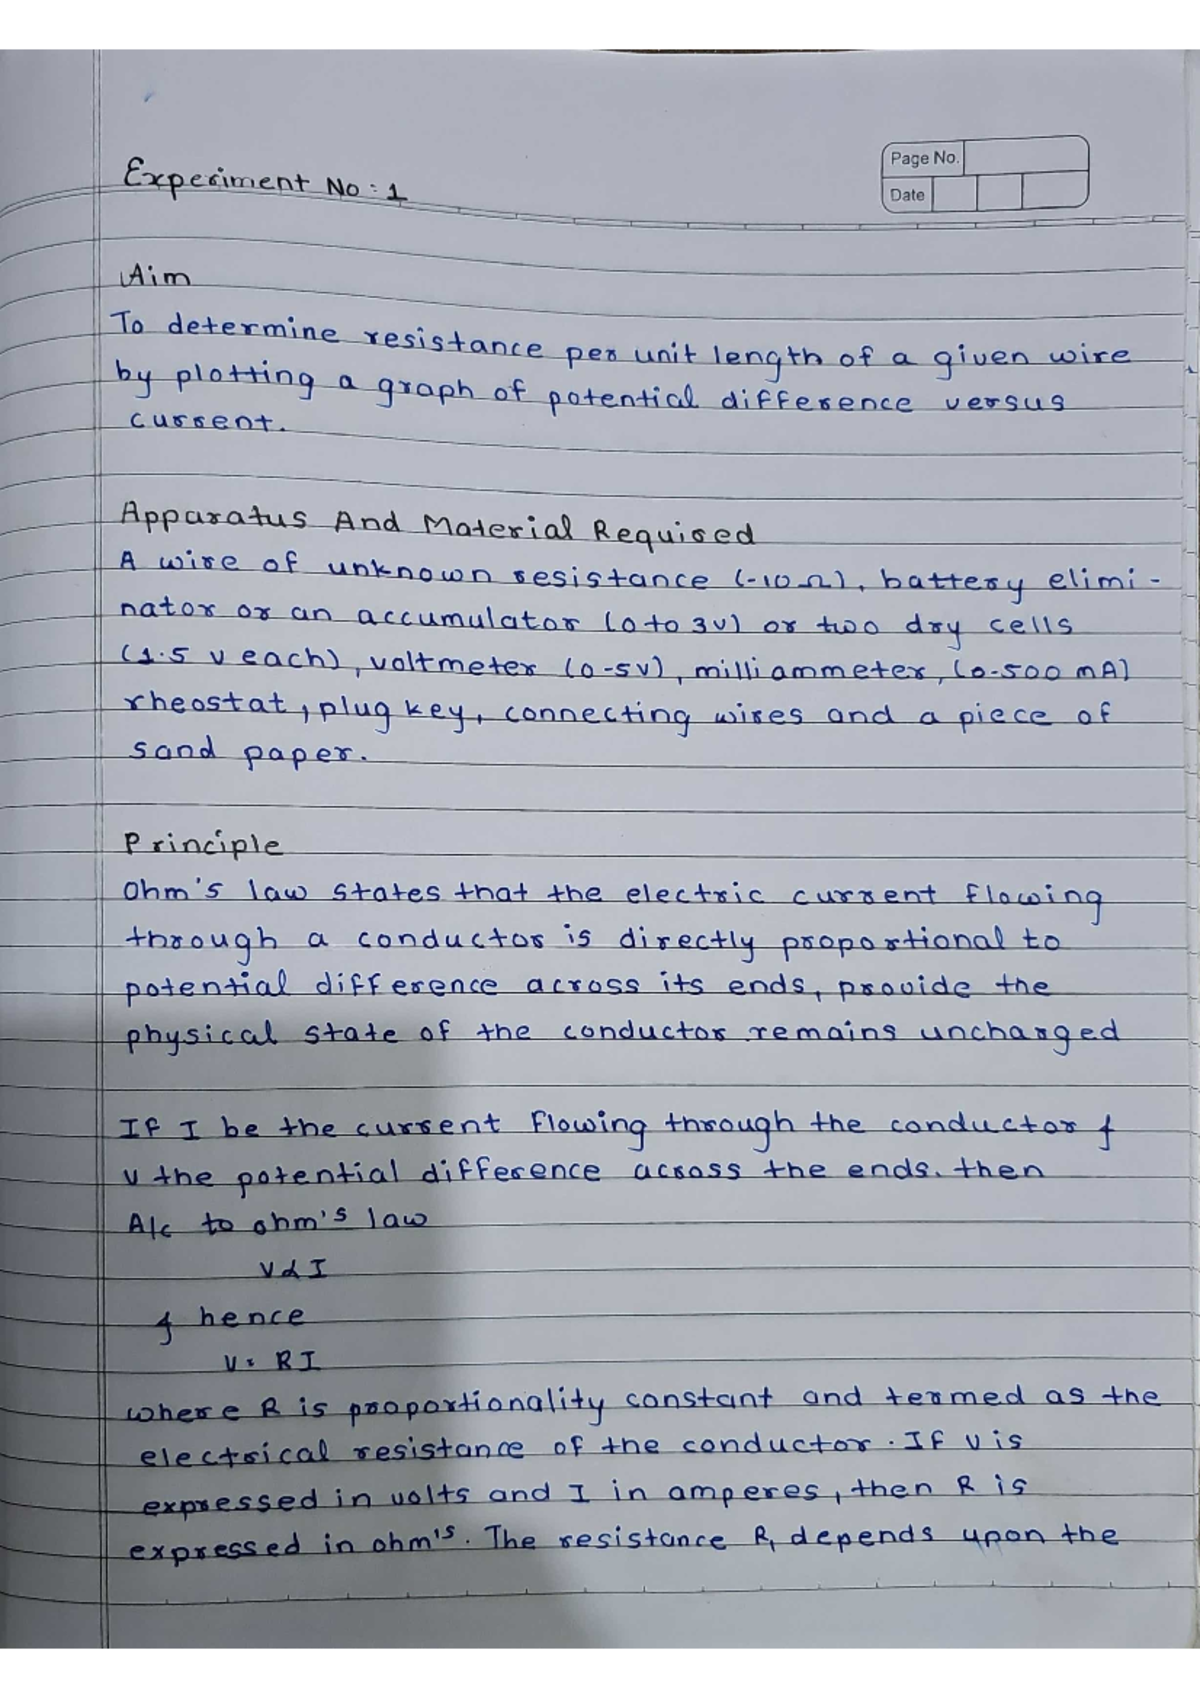 Page No.
Date
Experiment No : 1
Aim
To determine resistance per unit length of a given wire
by plotting a graph of potential difference versus
current.
Apparatus And Material Required
A wire of unknown resistance (-10Ω), battery elimi-
nator or an accumulator (0 to 3v) or two dry cells
(1.5 v each), voltmeter (0-5v), milliammeter, (0-500 mA)
rheostat, plug key, connecting wires and a piece of
sand paper.
Principle
Ohm's law states that the electric current flowing
through a conductor is directly proportional to
potential difference across its ends, provide the
physical state of the conductor remains uncharged
If I be the current flowing through the conductor &
v the potential difference across the ends. then
A/c to ohm's law
V ∝ I
& hence
V = RI
where R is proportionality constant and termed as the
electrical resistance of the conductor. If v is
expressed in volts and I in amperes, then R is
expressed in ohm's. The resistance R, depends upon the